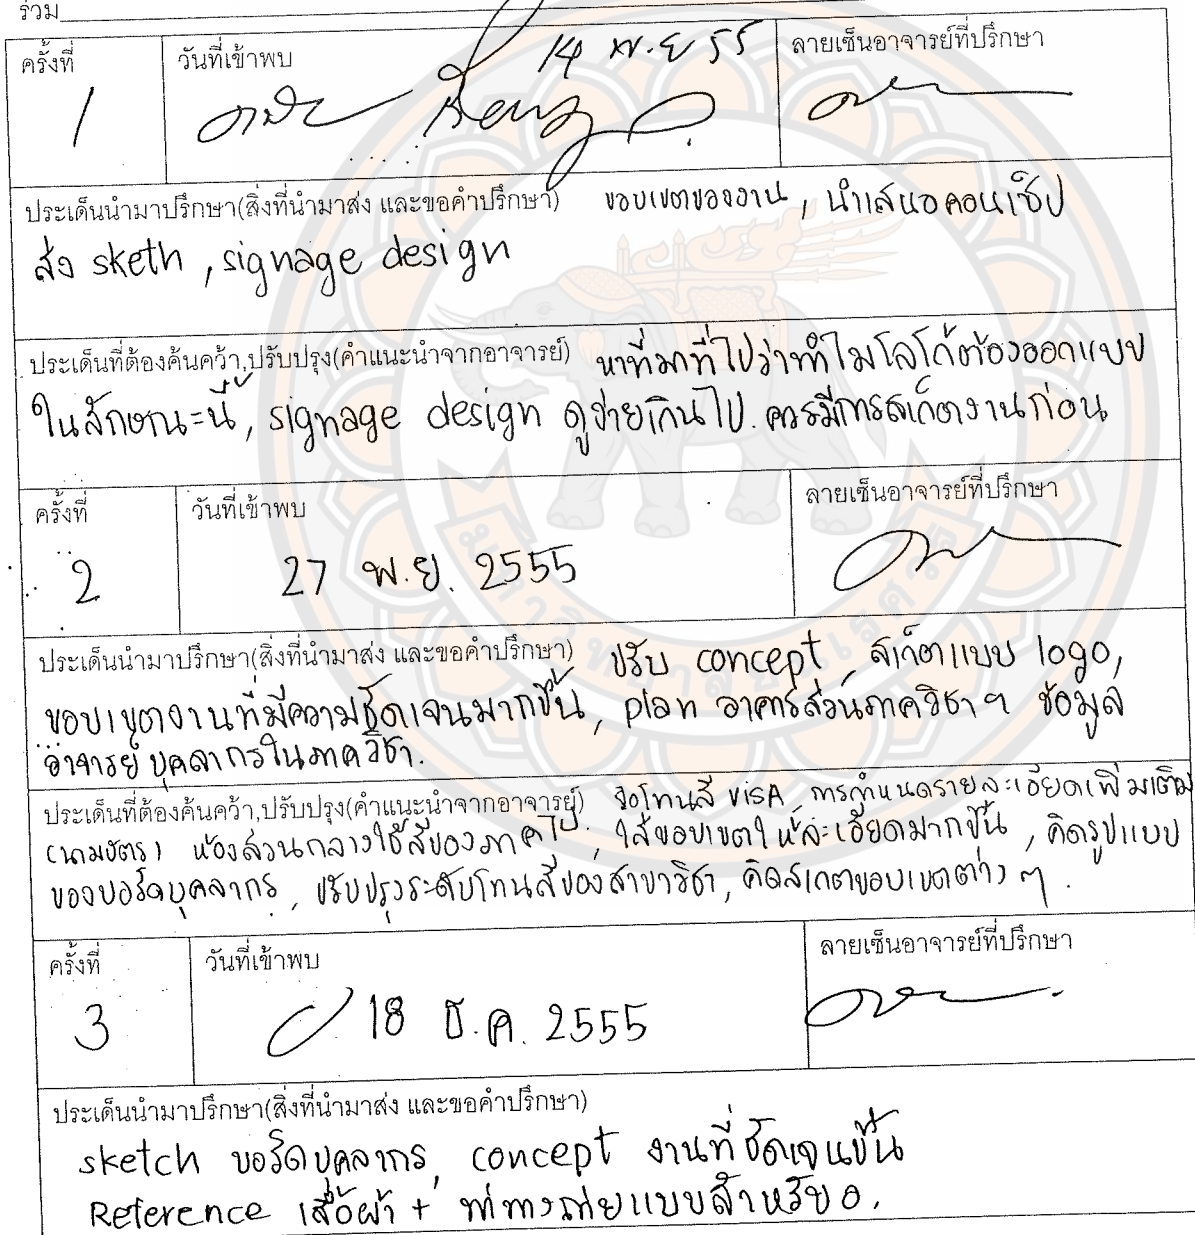 ร่วม
ครั้งที่ วันที่เข้าพบ 14 พ.ย 55 ลายเซ็นอาจารย์ที่ปรึกษา
1
ประเด็นนำมาปรึกษา(สิ่งที่นำมาส่ง และขอคำปรึกษา) ขอบเขตของงาน , นำเสนอคอนเซ็ป
ส่ง sketh , signage design
ประเด็นที่ต้องค้นคว้า,ปรับปรุง(คำแนะนำจากอาจารย์) หาที่มาที่ไปว่าทำไมโลโก้ต้องออกแบบ
ในลักษณะนี้, signage design ดูง่ายเกินไป. ควรมีการสเก็ตงานก่อน
ครั้งที่ วันที่เข้าพบ ลายเซ็นอาจารย์ที่ปรึกษา
2 27 พ.ย. 2555
ประเด็นนำมาปรึกษา(สิ่งที่นำมาส่ง และขอคำปรึกษา) ปรับ concept สเก็ตแบบ logo,
ขอบเขตงานที่มีความชัดเจนมากขึ้น, plan อาคารส่วนภาควิชาฯ ข้อมูล
อาจารย์ บุคลากรในภาควิชา.
ประเด็นที่ต้องค้นคว้า,ปรับปรุง(คำแนะนำจากอาจารย์) โทนสี VISA การกำหนดรายละเอียดเพิ่มเติม
(นามบัตร) ห้องส่วนกลางใช้สีของภาคไป, ใส่ขอบเขตให้ละเอียดมากขึ้น , คิดรูปแบบ
ของบอร์ดบุคลากร, ปรับปรุงระดับโทนสีของสาขาวิชา, คิดสเกตขอบเขตต่าง ๆ .
ครั้งที่ วันที่เข้าพบ ลายเซ็นอาจารย์ที่ปรึกษา
3 18 ธ.ค. 2555
ประเด็นนำมาปรึกษา(สิ่งที่นำมาส่ง และขอคำปรึกษา)
sketch บอร์ดบุคลากร, concept งานที่ชัดเจนขึ้น
Reference เสื้อผ้า + ท่าทางถ่ายแบบสำหรับอ.